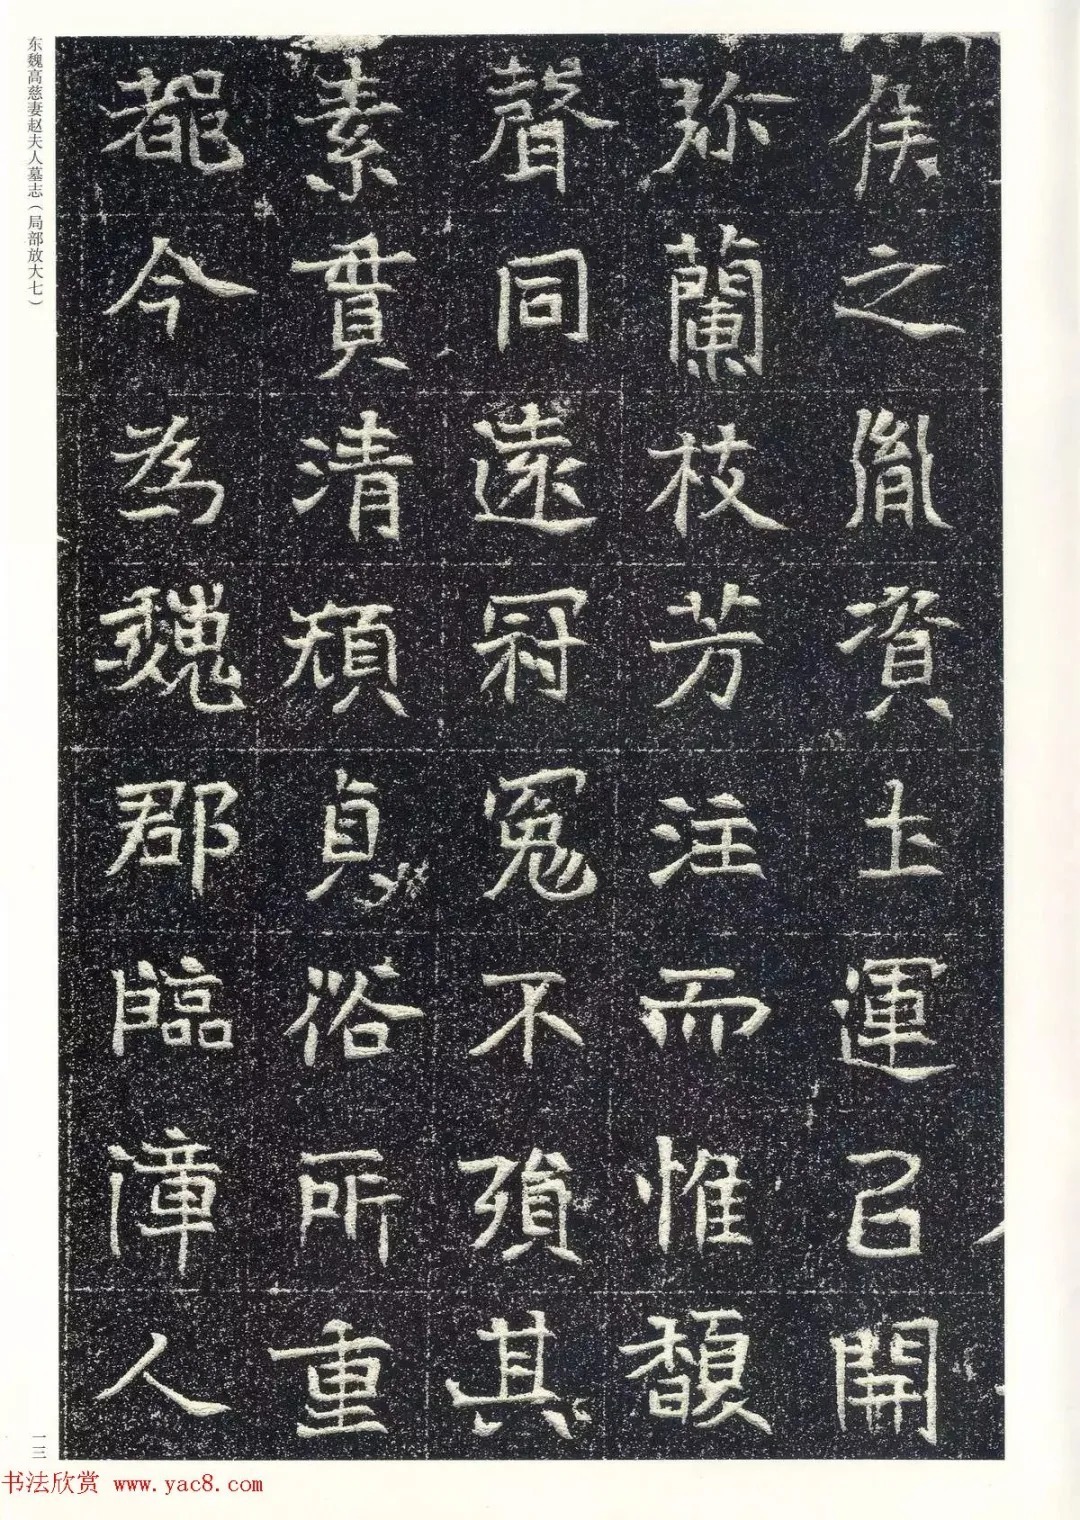 东魏高慈妻赵夫人墓志(局部放大七)
侯之胤資圡運開
弥蘭枝芳注而惟馥
聲同遠冠冕不殞其
素貫清頽貞浴所重
今為魏郡臨漳人
一三
书法欣赏 www.yac8.com